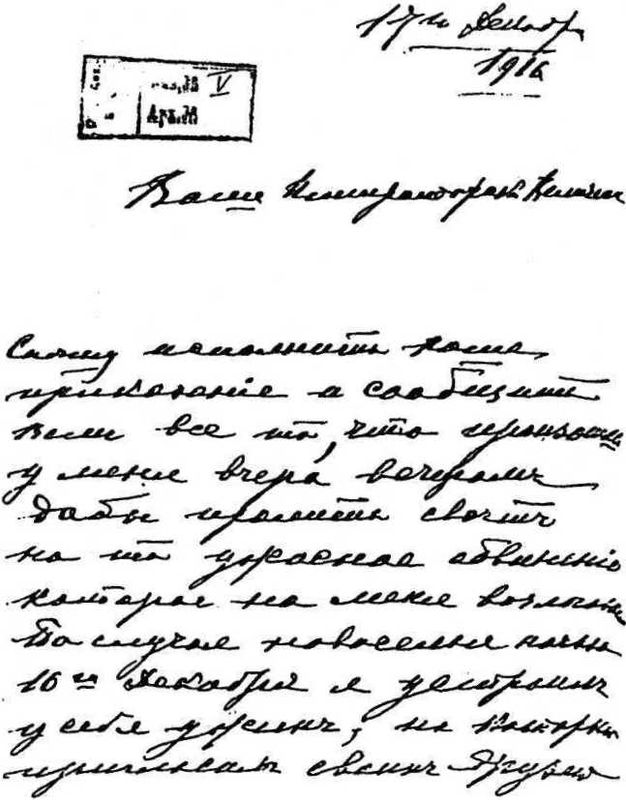 17го Декабр
1916
V
Ваше Императорск. Величес
Спешу исполнить Ваше
приказание и сообщить
Вам все то, что произош
у меня вчера вечеромъ
дабы пролить светъ
на то ужасное обвинение
которое на меня возложе
По случаю новоселья ночью
16го Декабря я устроилъ
у себя ужинъ, на который
пригласилъ своихъ друзей